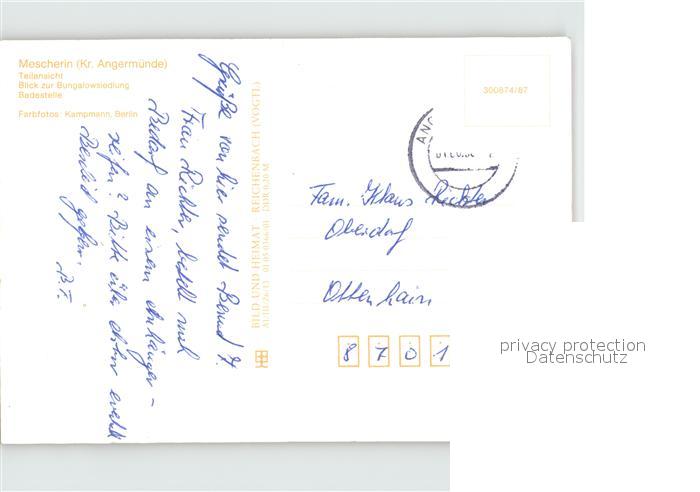 Mescherin (Kr. Angermünde)
Teilansicht
Blick zur Bungalowsiedlung
Badestelle
Farbfotos: Kampmann, Berlin
Grüße von hier sendet Bernd F.
Frau Richter, besteht noch
Bedarf an einem Anhänger-
reifen? Bitte
Bescheid geben.
B.F.
BILD UND HEIMAT REICHENBACH (VOGTL)
300874/87
ANG
Fam. Klaus Richter
Oberdorf
Ottenhain
8701
privacy protection
Datenschutz